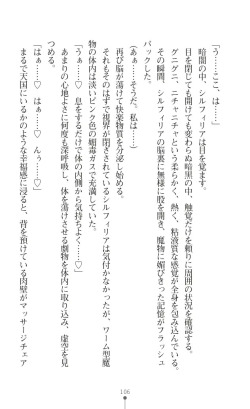 「う……ここ、は……」
暗闇の中、シルフィリアは目を覚ます。
目を閉じても開けても変わらぬ暗黒の中、触覚だけを頼りに周囲の状況を確認する。
グニグニ、ニチャニチャという柔らかく、熱く、粘液質な感覚が全身を包み込んでいる。
その瞬間、シルフィリアの脳裏に無様に股を開き、魔物に媚びきった記憶がフラッシュ
バックした。
（あぁ……そうだ、私は……）
再び脳が蕩けて快楽物質を分泌し始める。
それもそのはずで視界が閉ざされているシルフィリアは気付かなかったが、ワーム型魔
物の体内は淡いピンク色の媚毒ガスで充満していた。
（うぁ……♡　息をするだけで体の内側から気持ちよく……♡）
あまりの心地よさに何度も深呼吸し、体を蕩けさせる劇物を体内に取り込み、虚空を見
る。
「はぁ……♡　はぁ……♡　んぅ……♡」
まるで天国にいるかのような幸福感に浸ると、背を預けている肉壁がマッサージチェア
106